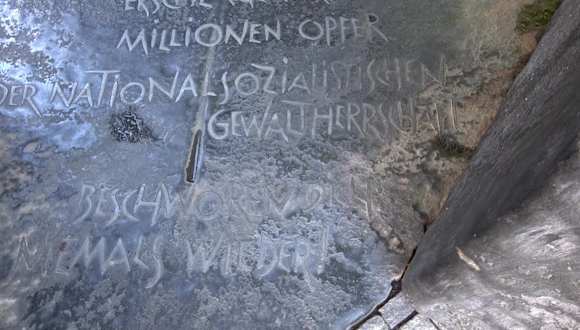 MILLIONEN OPFER
DER NATIONALSOZIALISTISCHEN
GEWALTHERRSCHAFT
BESCHWÖREN WIR
NIEMALS WIEDER!